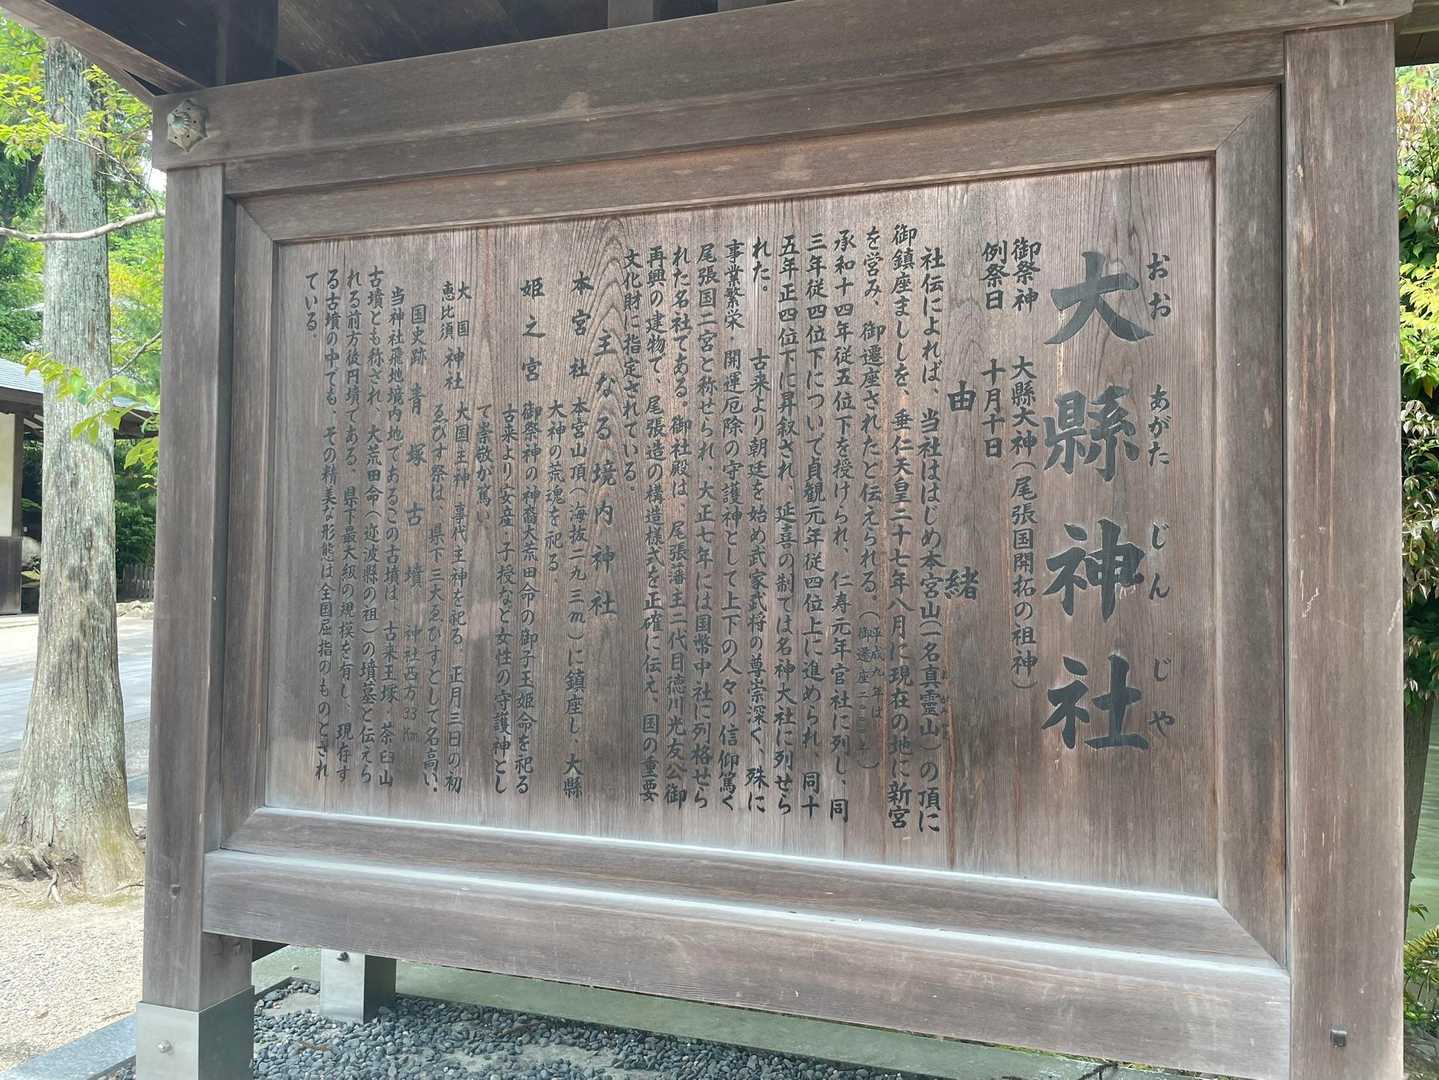 大縣神社
おお あがた じん じや
御祭神 大縣大神(尾張国開拓の祖神)
例祭日 十月十日
由緒
社伝によれば、当社ははじめ本宮山(一名真霊山)の頂に
御鎮座ましましを、垂仁天皇二十七年八月に現在の地に新宮
を営み、御遷座されたと伝えられる。(平成九年は御遷座二
承和十四年従五位下を授けられ、仁寿元年官社に列し、同
三年従四位下について貞観元年従四位上に進められ、同十
五年正四位下に昇叙され、延喜の制では名神大社に列せら
れた。 古来より朝廷を始め武家武将の尊崇深く、殊に
事業繁栄・開運厄除の守護神として上下の人々の信仰篤く
尾張国二宮と称せられ、大正七年には国幣中社に列格せら
れた名社である。御社殿は、尾張藩主二代目徳川光友公御
再興の建物で、尾張造の構造様式を正確に伝え、国の重要
文化財に指定されている。
主なる境内神社
本宮社 本宮山頂(海抜二九三m)に鎮座し、大縣
大神の荒魂を祀る。
姫之宮 御祭神の神裔大荒田命の御子玉姫命を祀る
古来より安産・子授など女性の守護神とし
て崇敬が篤い。
大国恵比須神社 大国主神・事代主神を祀る 正月三日の初
ゑびす祭は、県下三大ゑびすとして名高い。
国史跡 青塚古墳 神社西方33Km
当神社飛地境内地であるこの古墳は、古来王塚・茶臼山
古墳とも称され、大荒田命(迩波縣の祖)の墳墓と伝えら
れる前方後円墳である。県下最大級の規模を有し、現存す
る古墳の中でも、その精美な形態は全国屈指のものとされ
ている。